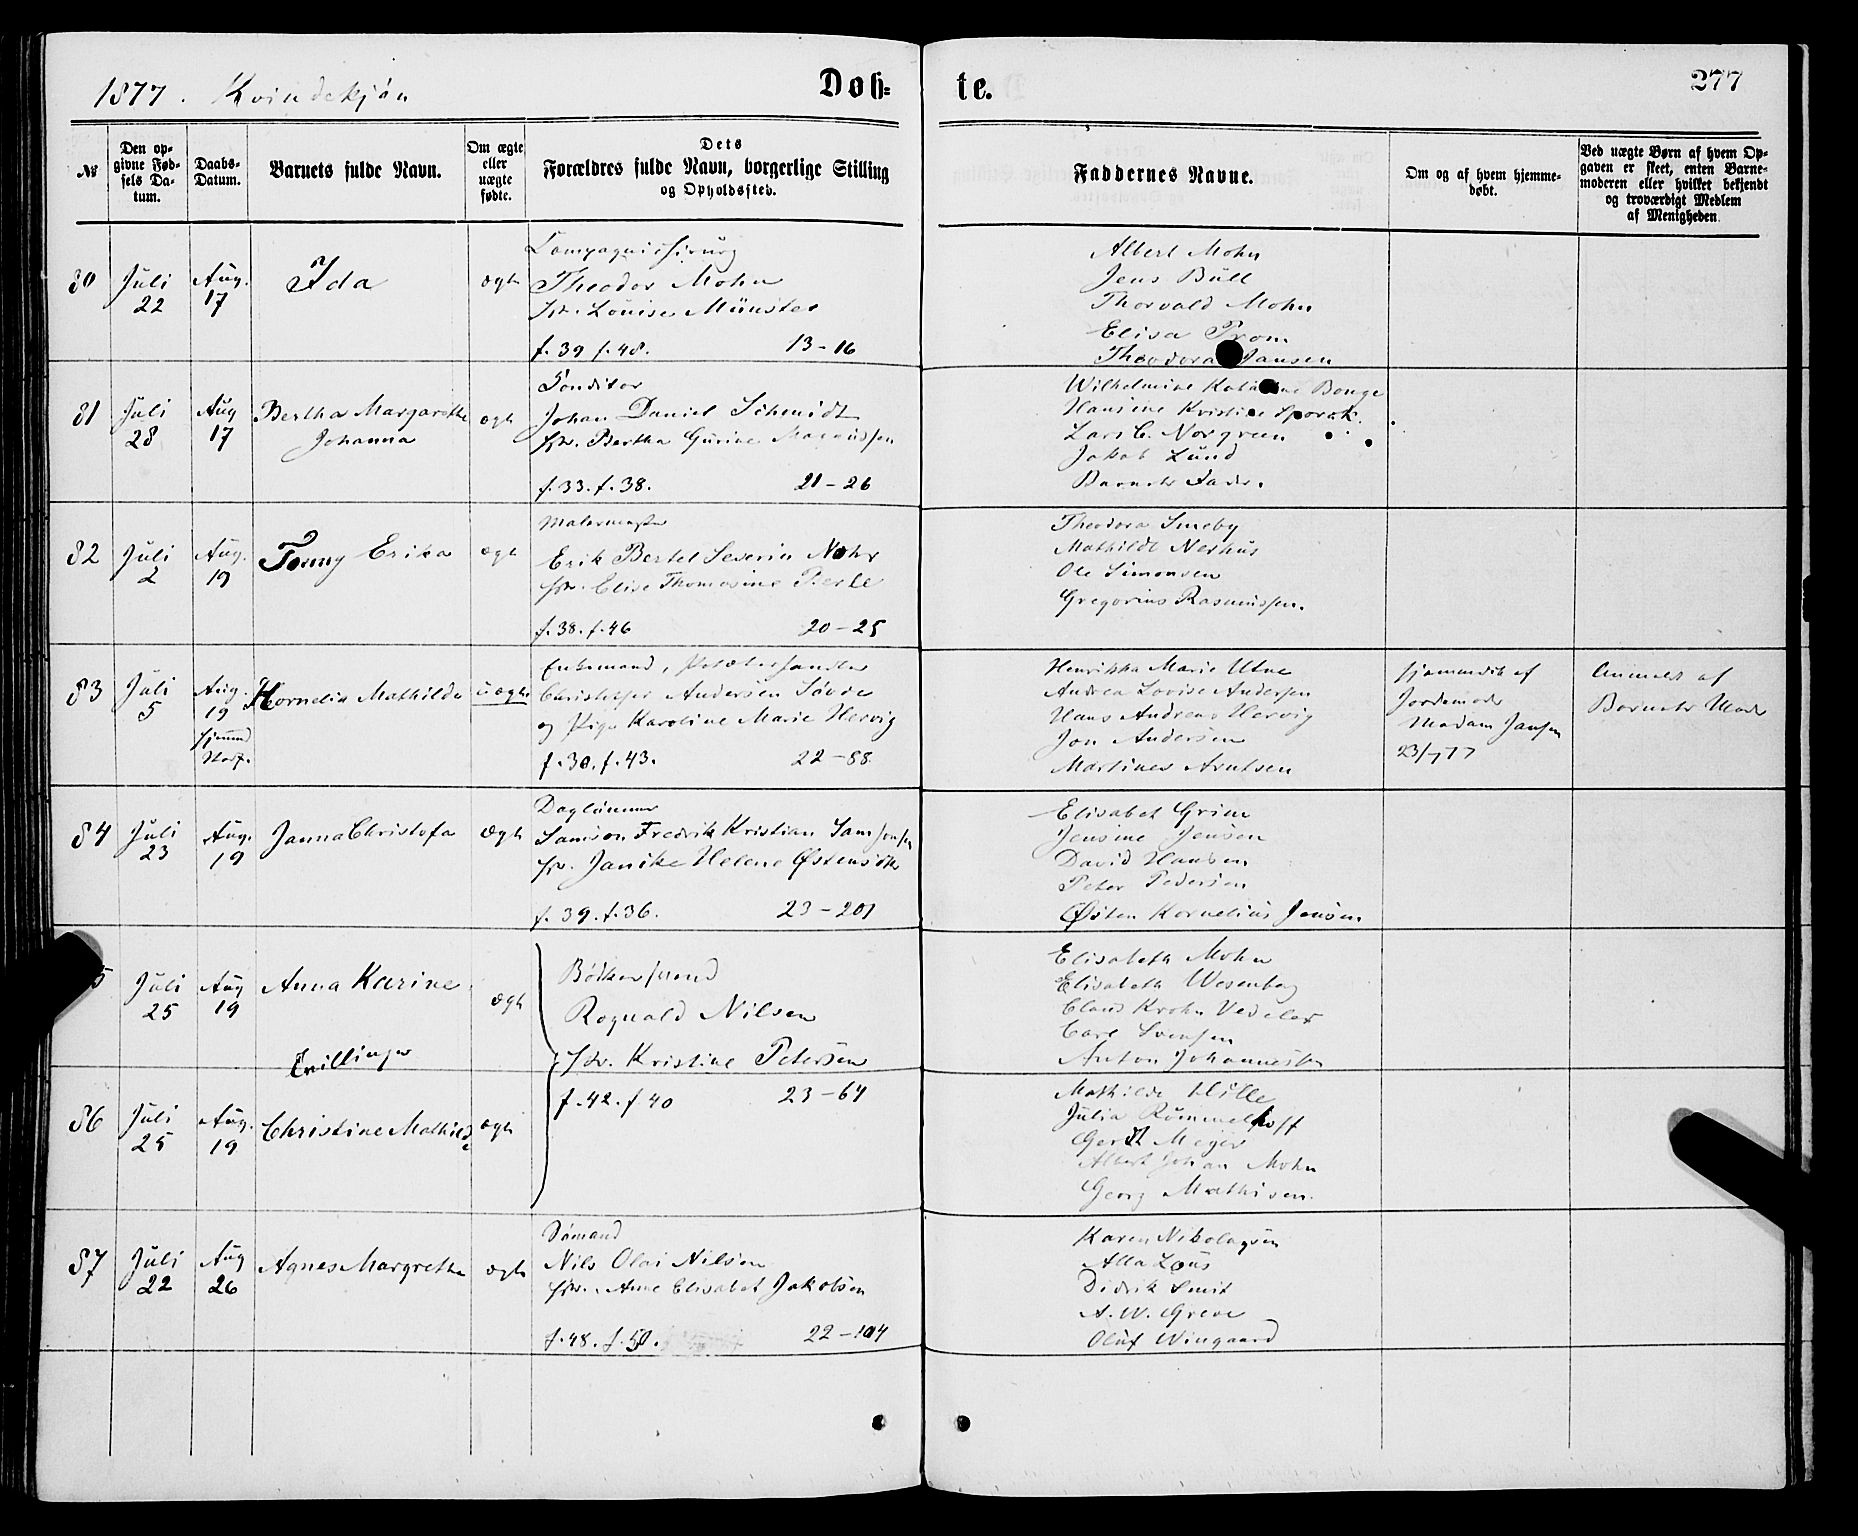 1877. Kvindekjön
Døb- te.
277
No
Den opgivne Fødsels Datum.
Daabs-Datum.
Barnets fulde Navn.
Om ægte eller uægte fødte.
Dets Forældres fulde Navn, borgerlige Stilling og Opholdssted.
Faddernes Navne.
Om og af hvem hjemmedøbt.
Ved uægte Børn af hvem Opgaven er skeet, enten Barnemoderen eller hvilket bekjendt og troværdigt Medlem af Menigheden.
80 Juli 22 Aug. 17 Ida ægte
Compagnichirurg
Theodor Mohn
Hu. Louise Münster
f. 39 f. 48. 13-16
Albert Mohn
Jens Bull
Thorvald Mohn
Elisa Prom
Theodora Jansen
81 Juli 28 Aug 17 Bertha Margarethe Johanna ægte
Conditor
Johan Daniel Schmidt
Hu. Bertha Gurine Magnussen
f. 33. f. 38. 21-26
Wilhelmine Bonge
Hansine Kristine
Lars C. Norgreen
Jakob Lund
Barnets Fader.
82 Juli 2 Aug. 19 Fanny Erika ægte
Malermester
Erik Bertel Severin Nohr
Hu. Elise Thomasine Perle
f. 38. f. 46 20-25
Theodora Smeby
Mathilde Nerhus
Ole Simonsen
Gregorius Rasmussen.
83 Juli 5 Aug. 19 hjemmed Kornelia Mathilde uægte
Enkemand,
Christopher Andersen Søvde
og Pige Karoline Marie Hervig
f. 30. f. 43. 22-88
Henrikka Marie Utne
Andrea Lovise Andersen
Hans Andreas Hervig
Jon Andersen
Martines Arntsen
hjemmedöbt af
Jordemoder
Madam Jansen
23/7 77
Anmeldt af
Barnets Moder
84 Juli 23 Aug. 19 Janna Christofa ægte
Daglønner
Samson Fredrik Kristian Samsonsen
Hu. Janike Helene
f. 39. f. 36. 23-201
Elisabet Grim
Jensine Jensen
David Hansen
Peter Pedersen
Østen Kornelius Jensen
5 Juli 25 Aug 19 Anna Karine ægte
Tvillinger
Bödkersvend
Rognald Nilsen
Hu. Kristine Petersen
f. 42. f 40 23-64
Elisabeth Mohn
Elisabeth Wesenberg
Claus Krohn Vedeler
Carl Svensen
Anton Johannesen
86 Juli 25 Aug. 19 Christine Mathilde ægte
Mathilde Hille
Julia Rømmelhoff
Gerdt Meyer
Albert Johan Mohn
Georg Mathisen.
87 Juli 22 Aug 26 Agnes Margrethe ægte
Sömand
Nils Olai Nilsen
Hu. Anne Elisabet Jakobsen
f. 48. f. 50. 22-104
Karen Nikolaysen
Alla Lous
Didrik Smit
A. W. Greve
Oluf Wingaard